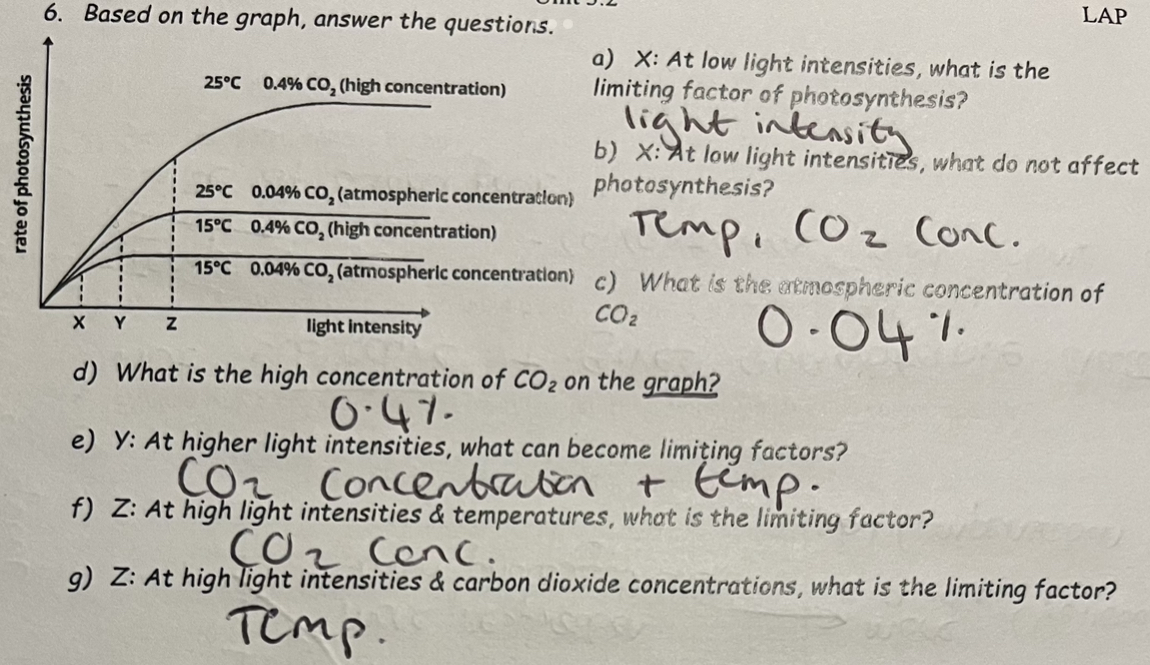 LAP
6. Based on the graph, answer the questions.
rate of photosynthesis
25°C 0.4% CO₂ (high concentration)
25°C 0.04% CO₂ (atmospheric concentration)
15°C 0.4% CO₂ (high concentration)
15°C 0.04% CO₂ (atmospheric concentration)
X Y Z light intensity
a) X: At low light intensities, what is the
limiting factor of photosynthesis?
light intensity
b) X: At low light intensities, what do not affect
photosynthesis?
Temp, CO₂ Conc.
c) What is the atmospheric concentration of
CO₂
0.04%
d) What is the high concentration of CO₂ on the graph?
0.4%
e) Y: At higher light intensities, what can become limiting factors?
CO₂ Concentration + temp.
f) Z: At high light intensities & temperatures, what is the limiting factor?
CO₂ Conc.
g) Z: At high light intensities & carbon dioxide concentrations, what is the limiting factor?
Temp.